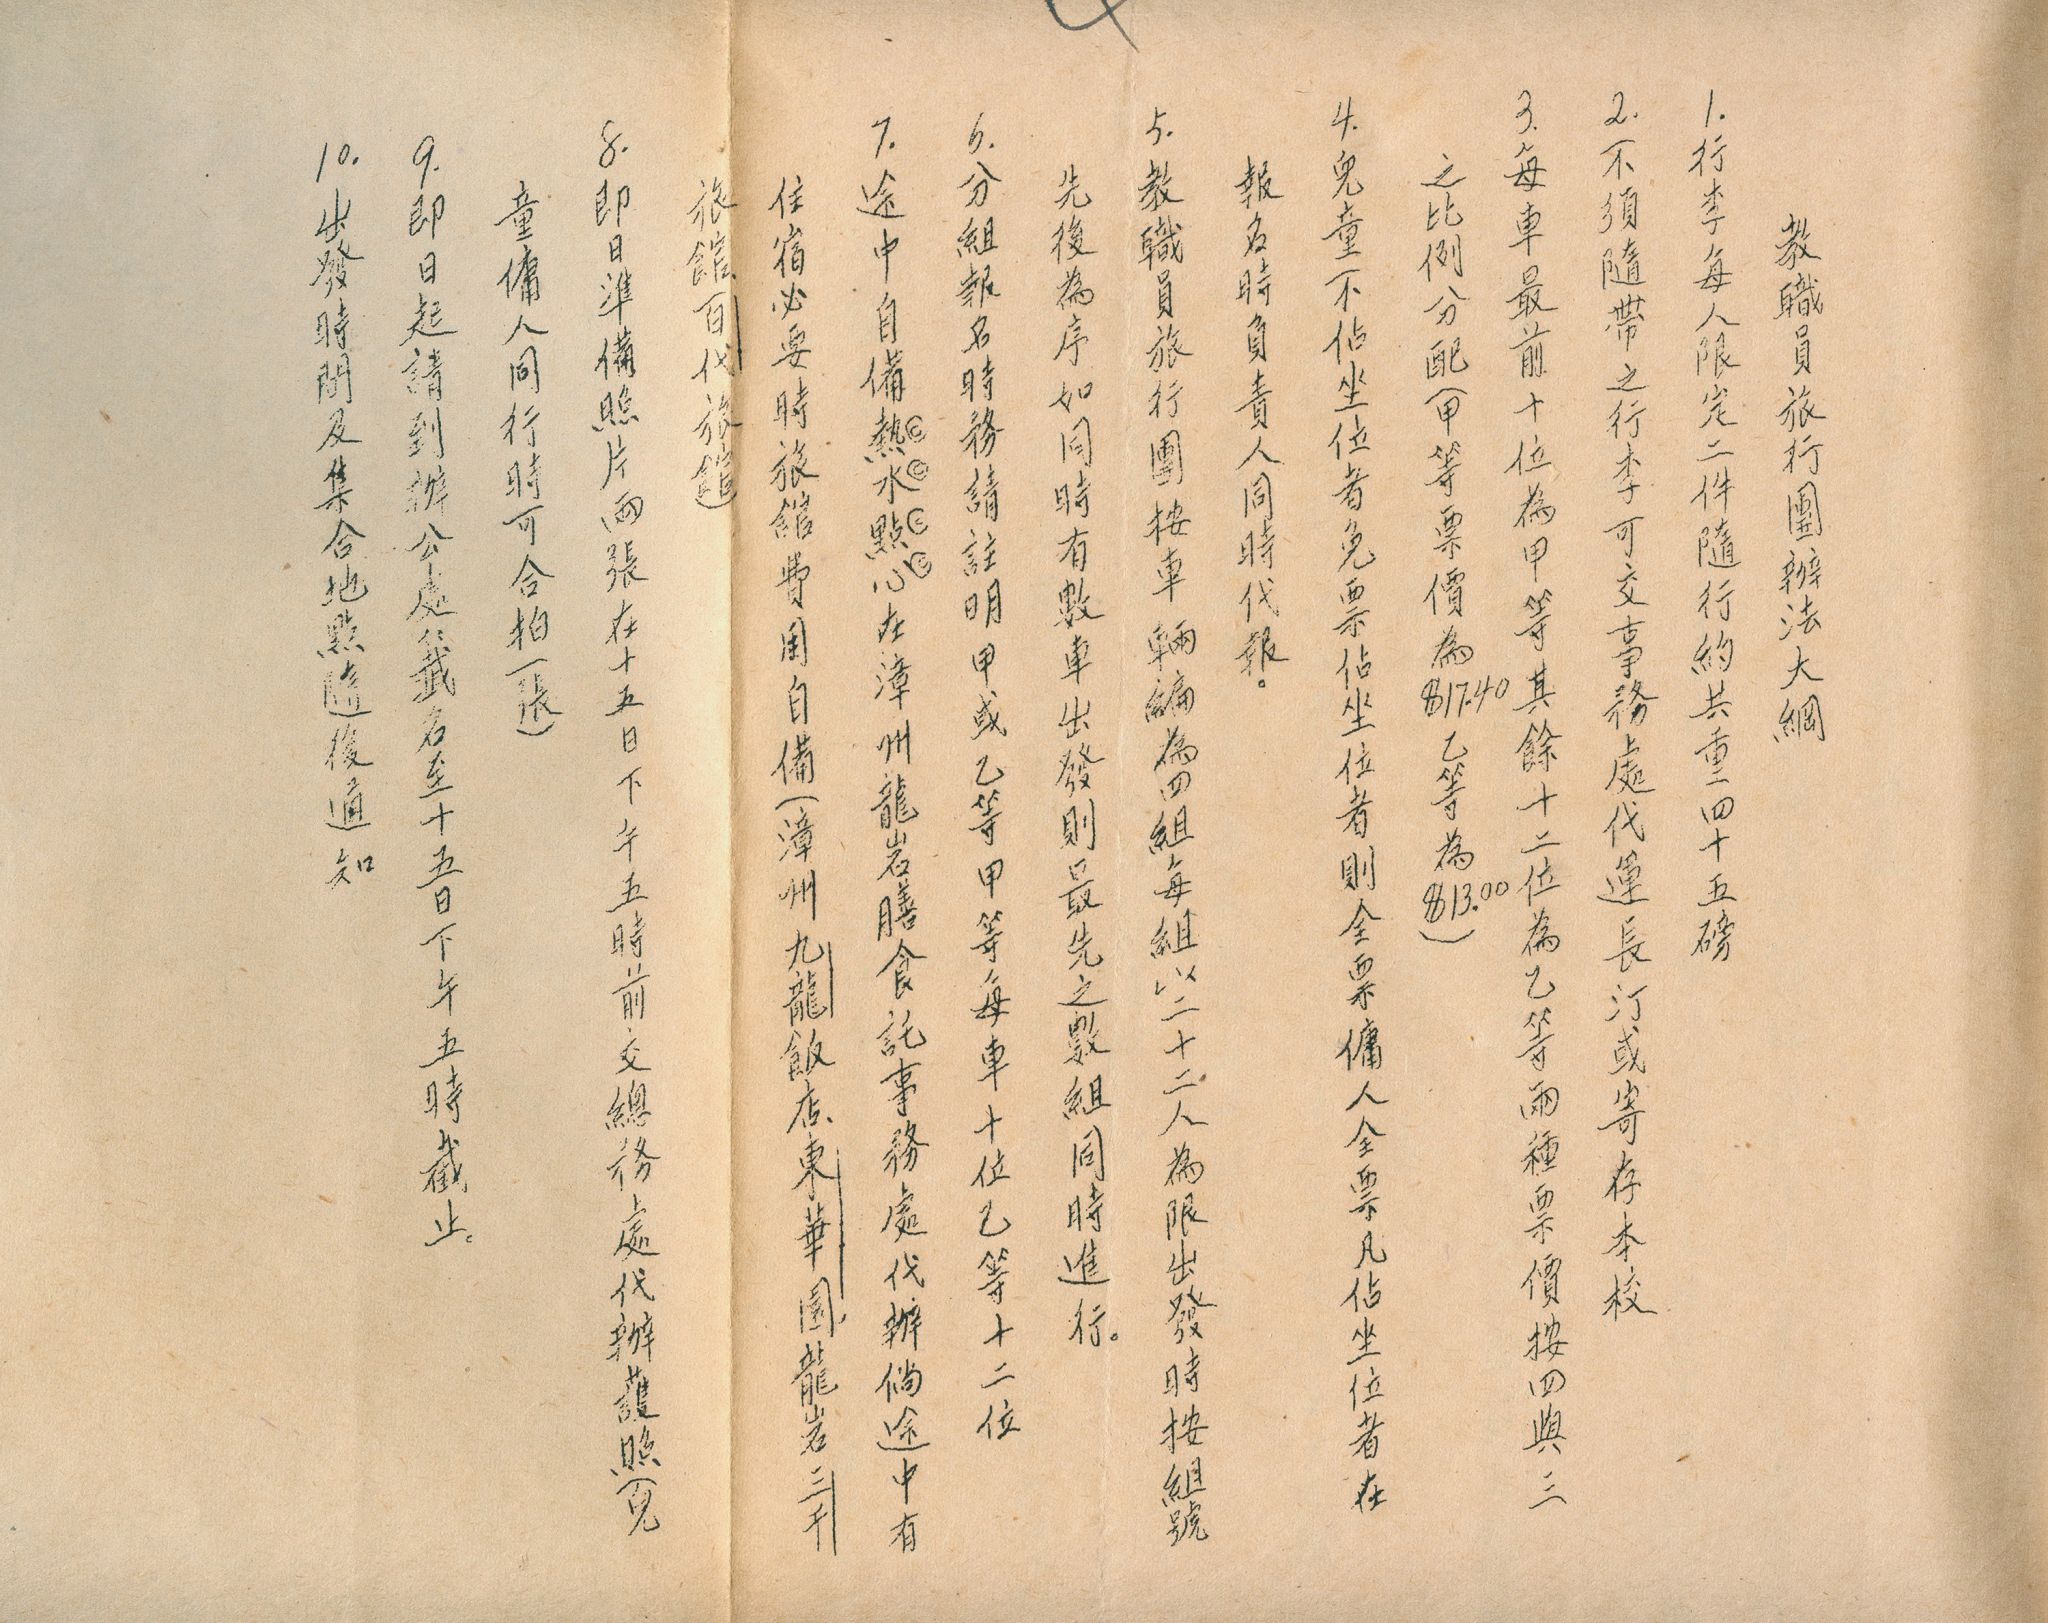 教職員旅行團辦法大綱
1.行李每人限定二件隨行約共重四十五磅
2.不須隨帶之行李可交事務處代運長汀或寄存本校
3.每車最前十位為甲等其餘十二位為乙等兩種票價按四與三
之比例分配(甲等票價為$17.40乙等為$13.00)
4.兒童不佔坐位者免票佔坐位者則全票傭人全票凡佔坐位者在
報名時負責人同時代報。
5.教職員旅行團按車輛編為四組每組以二十二人為限出發時按組號
先後為序如同時有數車出發則最先之數組同時進行。
6.分組報名時務請註明甲或乙等甲等每車十位乙等十二位
7.途中自備熱水點心在漳州龍岩膳食託事務處代辦倘途中有
住宿必要時旅館費用自備(漳州九龍飯店、東華園、龍岩三千
旅館、百代旅館)
8.即日準備照片兩張在十五日下午五時前交總務處代辦護照(兒
童傭人同行時可合拍一張)
9.即日起請到辦公處簽名至十五日下午五時截止。
10.出發時間及集合地點隨後通知